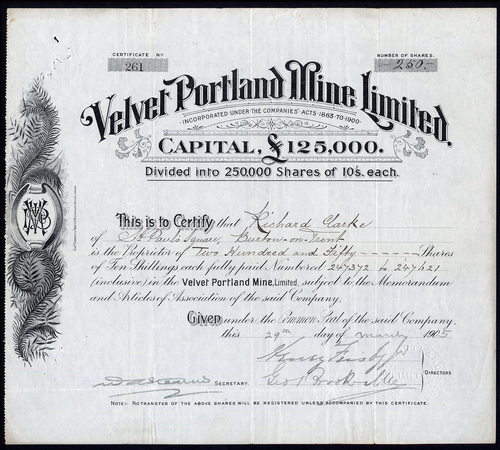 CERTIFICATE No
261
NUMBER OF SHARES.
-250.-
Velvet Portland Mine Limited.
INCORPORATED UNDER THE COMPANIES' ACTS 1863 TO 1900
CAPITAL, £125,000.
Divided into 250,000 Shares of 10s. each.
This is to Certify that Richard Clarke
of St Pauls Square, Burton-on-Trent
is the Proprietor of Two Hundred and Fifty Shares
of Ten Shillings each fully paid Numbered 247372 to 247621
(inclusive) in the Velvet Portland Mine, Limited, subject to the Memorandum
and Articles of Association of the said Company.
Given under the Common Seal of the said Company.
this 29th day of March 1905
SECRETARY.
DIRECTORS
NOTE:- NO TRANSFER OF THE ABOVE SHARES WILL BE REGISTERED UNLESS ACCOMPANIED BY THIS CERTIFICATE.